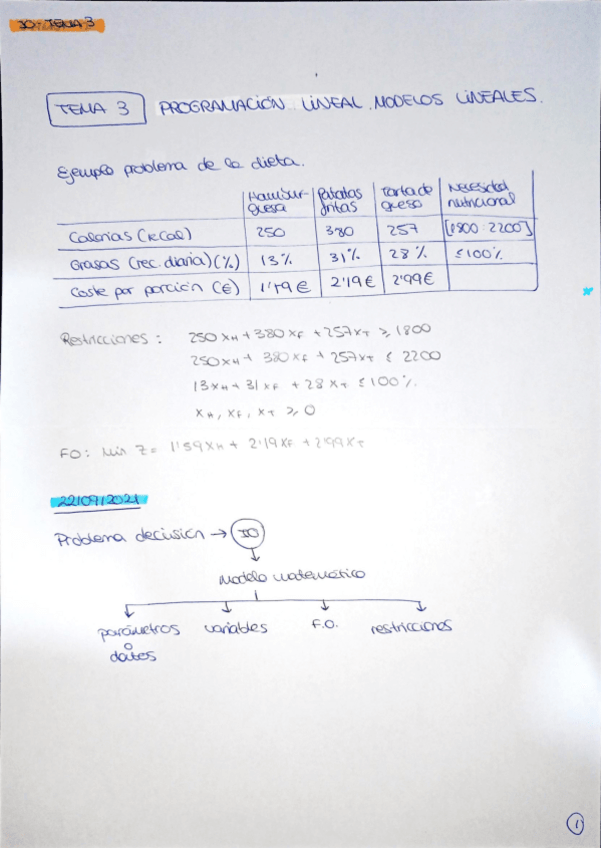 IO-TEMA 3
TEMA 3 PROGRAMACIÓN LINEAL. MODELOS LINEALES.
Ejemplo problema de la dieta.
Hambur- Patatas Tarta de Necesidad
guesa fritas queso nutricional
Calorías (kcal) 250 380 257 [1800-2200]
Grasas (rec. diaria) (%) 13% 31% 28% ≤100%
Coste por porción (€) 1'59€ 2'19€ 2'99€
Restricciones: 250xH + 380xF + 257xT ≥ 1800
250xH + 380xF + 257xT ≤ 2200
13xH + 31xF + 28xT ≤ 100%
xH, xF, xT ≥ 0
FO: Min Z = 1'59xH + 2'19xF + 2'99xT
22/09/2021
Problema decisión → IO
Modelo matemático
parámetros variables F.O. restricciones
o
datos
1